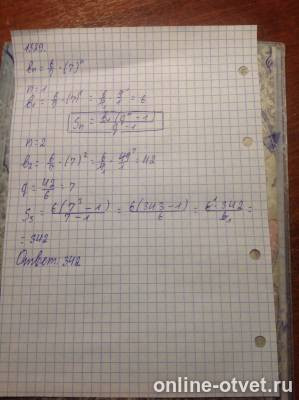 1379.
bₙ = 6/7 · (7)ⁿ
n=1
b₁ = 6/7 · (7)¹ = 6/7 · 7/1 = 6
Sₙ = b₁(qⁿ - 1)/q - 1
n=2
b₂ = 6/7 · (7)² = 6/7 · 49/1 = 42
q = 42/6 = 7
S₃ = 6(7³ - 1)/7 - 1 = 6(343 - 1)/6 = 6 · 342/6 =
= 342
Ответ: 342
online-otvet.ru